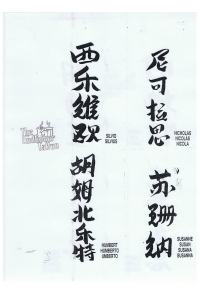 西乐维欧
SILVIO
SILVIUS
尼可拉思
NICHOLAS
NICOLAS
NICOLA
The
Tattoo
胡姆北乐特
HUMBERT
HUMBERTO
UMBERTO
苏珊纳
SUSANNE
SUSAN
SUSANA
SUSANNA